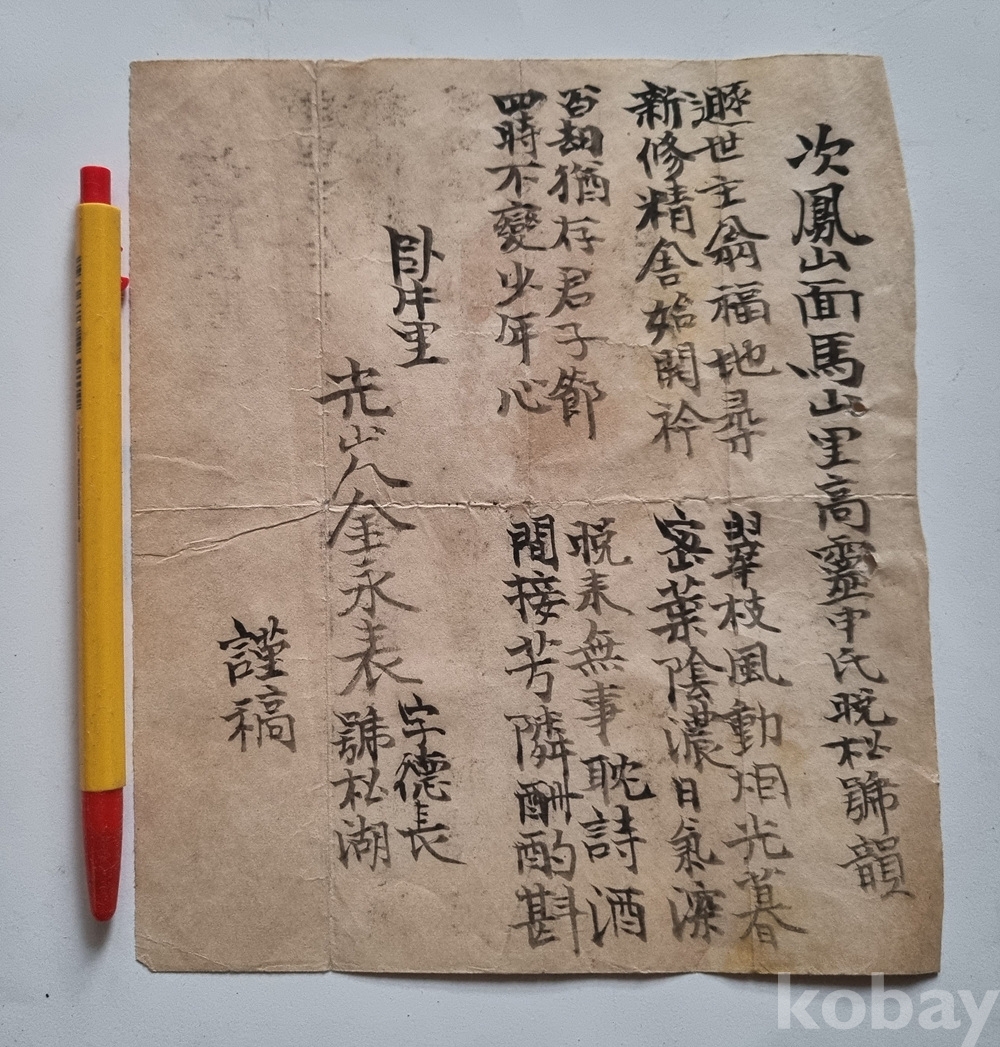 次鳳山面馬山里高靈申氏晩松號韻
遯世主翁福地尋
新修精舍始開衿
翠枝風動烟光暮
密葉陰濃日氣深
百劫猶存君子節
四時不變少年心
晩來無事耽詩酒
間接芳隣酬酌斟
臥牛里
光山人金永表
字德長
號松湖
謹稿
kobay